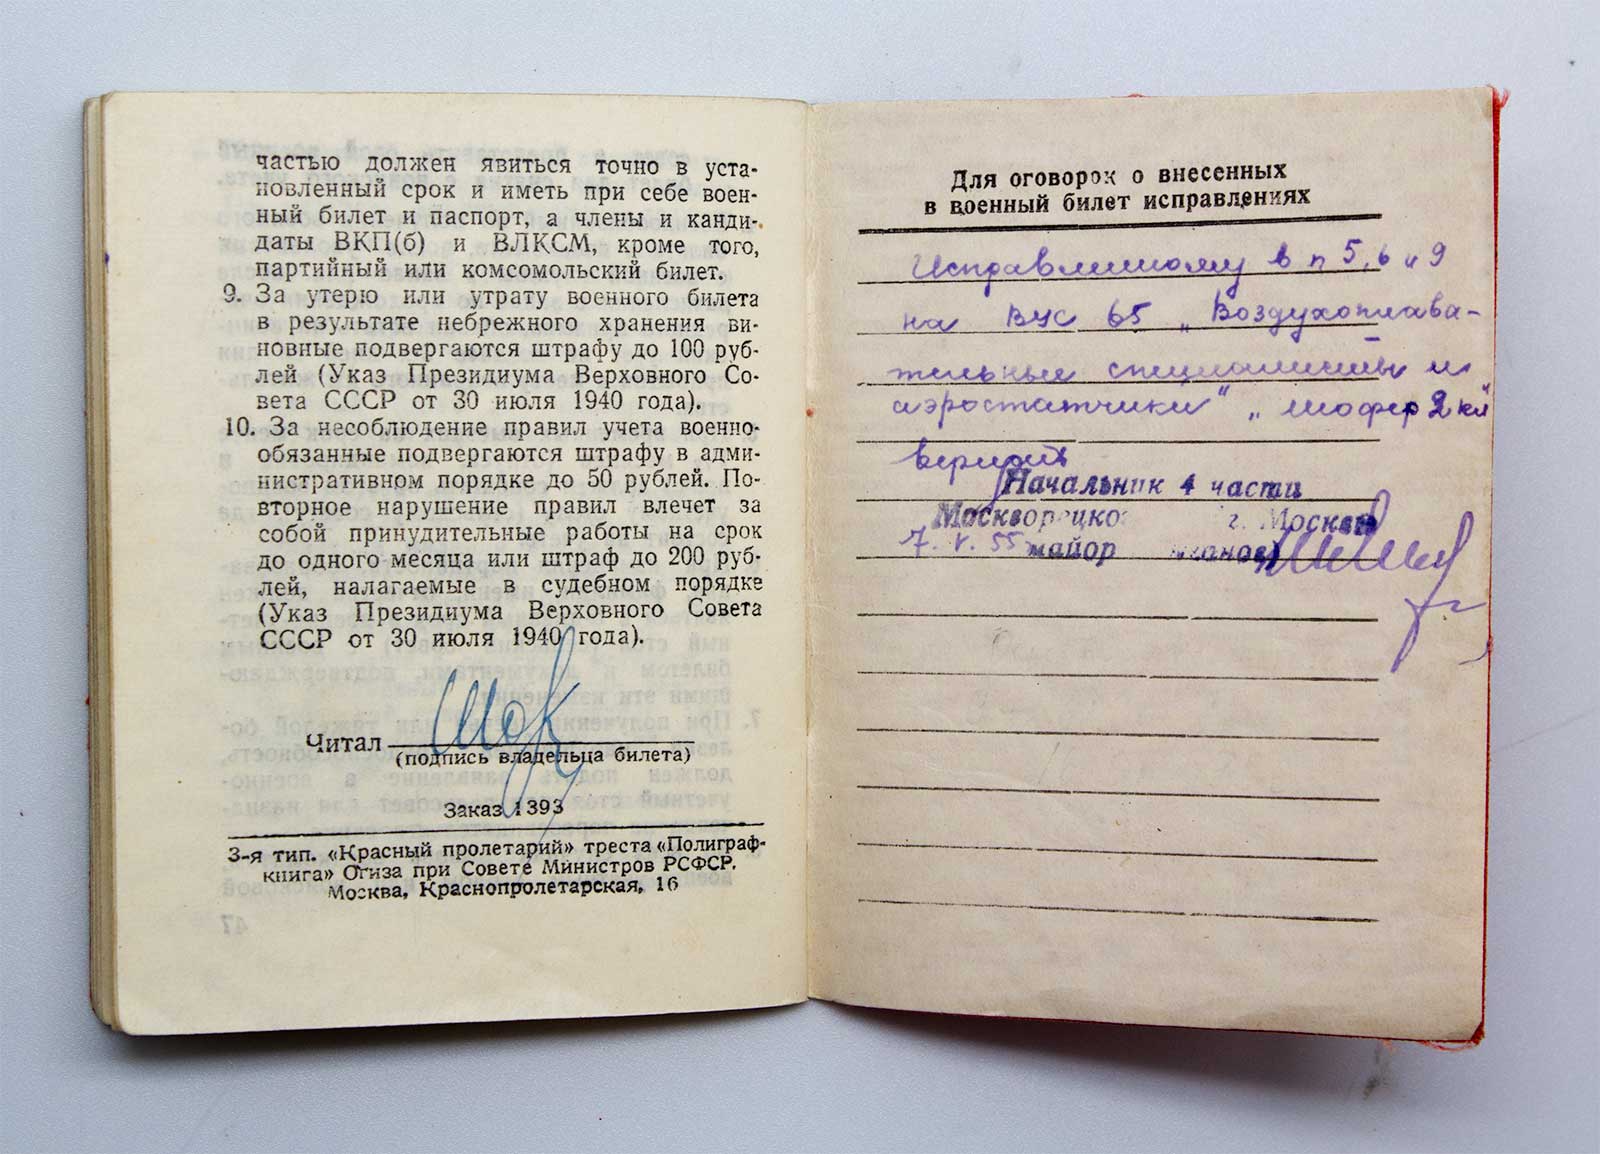 частью должен явиться точно в уста-
новленный срок и иметь при себе воен-
ный билет и паспорт, а члены и канди-
даты ВКП(б) и ВЛКСМ, кроме того,
партийный или комсомольский билет.
9. За утерю или утрату военного билета
в результате небрежного хранения ви-
новные подвергаются штрафу до 100 руб-
лей (Указ Президиума Верховного Со-
вета СССР от 30 июля 1940 года).
10. За несоблюдение правил учета военно-
обязанные подвергаются штрафу в адми-
нистративном порядке до 50 рублей. По-
вторное нарушение правил влечет за
собой принудительные работы на срок
до одного месяца или штраф до 200 руб-
лей, налагаемые в судебном порядке
(Указ Президиума Верховного Совета
СССР от 30 июля 1940 года).
Читал
(подпись владельца билета)
Заказ 1393
3-я тип. «Красный пролетарий» треста «Полиграф-
книга» Огиза при Совете Министров РСФСР.
Москва, Краснопролетарская, 16
Для оговорок о внесенных
в военный билет исправлениях
Исправленному в п 5, 6 и 9
на ВУС 65 „Воздухоплава-
тельные специалисты и
аэростатчики" „шофер 2 кл"
верить
Начальник 4 части
г. Москвы
7. V. 55 майор